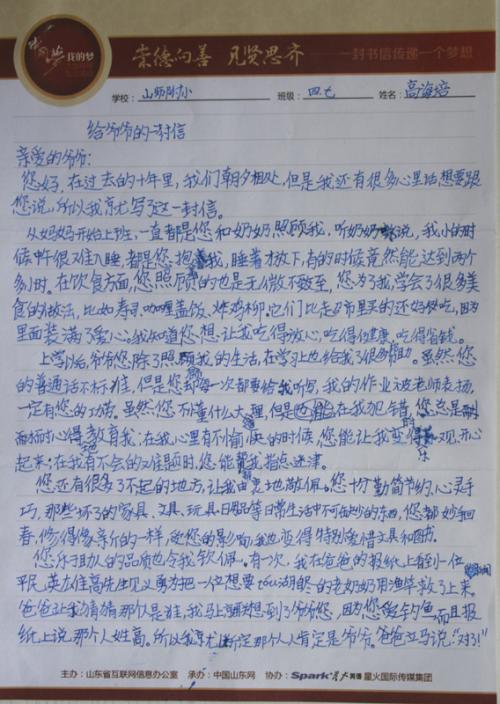 我的梦
崇德向善 见贤思齐 一封书信传递一个梦想
学校: 山师附小 班级: 四七 姓名: 高海培
给爷爷的一封信
亲爱的爷爷:
您好,在过去的十年里,我们朝夕相处,但是我还有很多心里话想要跟
您说,所以我就写了这一封信。
从妈妈开始上班,一直都是您和奶奶照顾我,听奶奶说,我小的时
候午很难入睡,都是您抱我,睡着才放下,有的时候竟然能达到两个
多小时。在饮食方面,您照顾的也是无微不致至,您为了我,学会了很多美
食的做法,比如寿司、咖喱盖饭、炸鸡柳。它们比超市里买的还好吃,因为
里面装满了爱心;我知道您想让我吃得放心,吃得健康,吃得省钱。
上学以后,爷爷您除了照顾我的生活,在学习上也给了我很多帮助。虽然您
的普通话不标准,但是您却每一次都要给我听写,我的作业被老师表扬,
一定有您的功劳。虽然您不懂什么大道理,但是在我犯错时,您总是耐
心地教育我;在我心里有不愉快的时候,您能让我变得乐观、开心
起来;在我有不会的难题时,您能帮我指点迷津。
您还有很多了不起的地方,让我由衷地敬佩。您十分勤简节约、心灵手
巧,那些坏了的家具、文具、玩具、日用品等日常生活中不可缺少的东西,您都妙手回
春,修得像新的一样,受您的影响,我也变得特别爱惜文具和图书。
您乐于助人的品质也令我钦佩。有一次,我在爸爸的报纸上看到一位
平民英雄高先生见义勇为把一位想要tou湖自尽的老奶奶用渔竿救了上来。
爸爸让我猜猜那个人是谁,我马上联想到了爷爷您,因为您爱钓鱼而且报
纸上说那个人姓高。所以我就断定那个人肯定是爷爷。爸爸立马说:“对了!”
主办:山东省互联网信息办公室 承办:中国山东网 协办:Spark星火英语 星火国际传媒集团